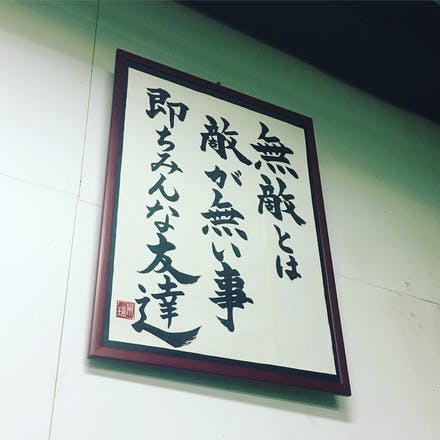 無敵とは
敵が無い事
即ちみんな友達